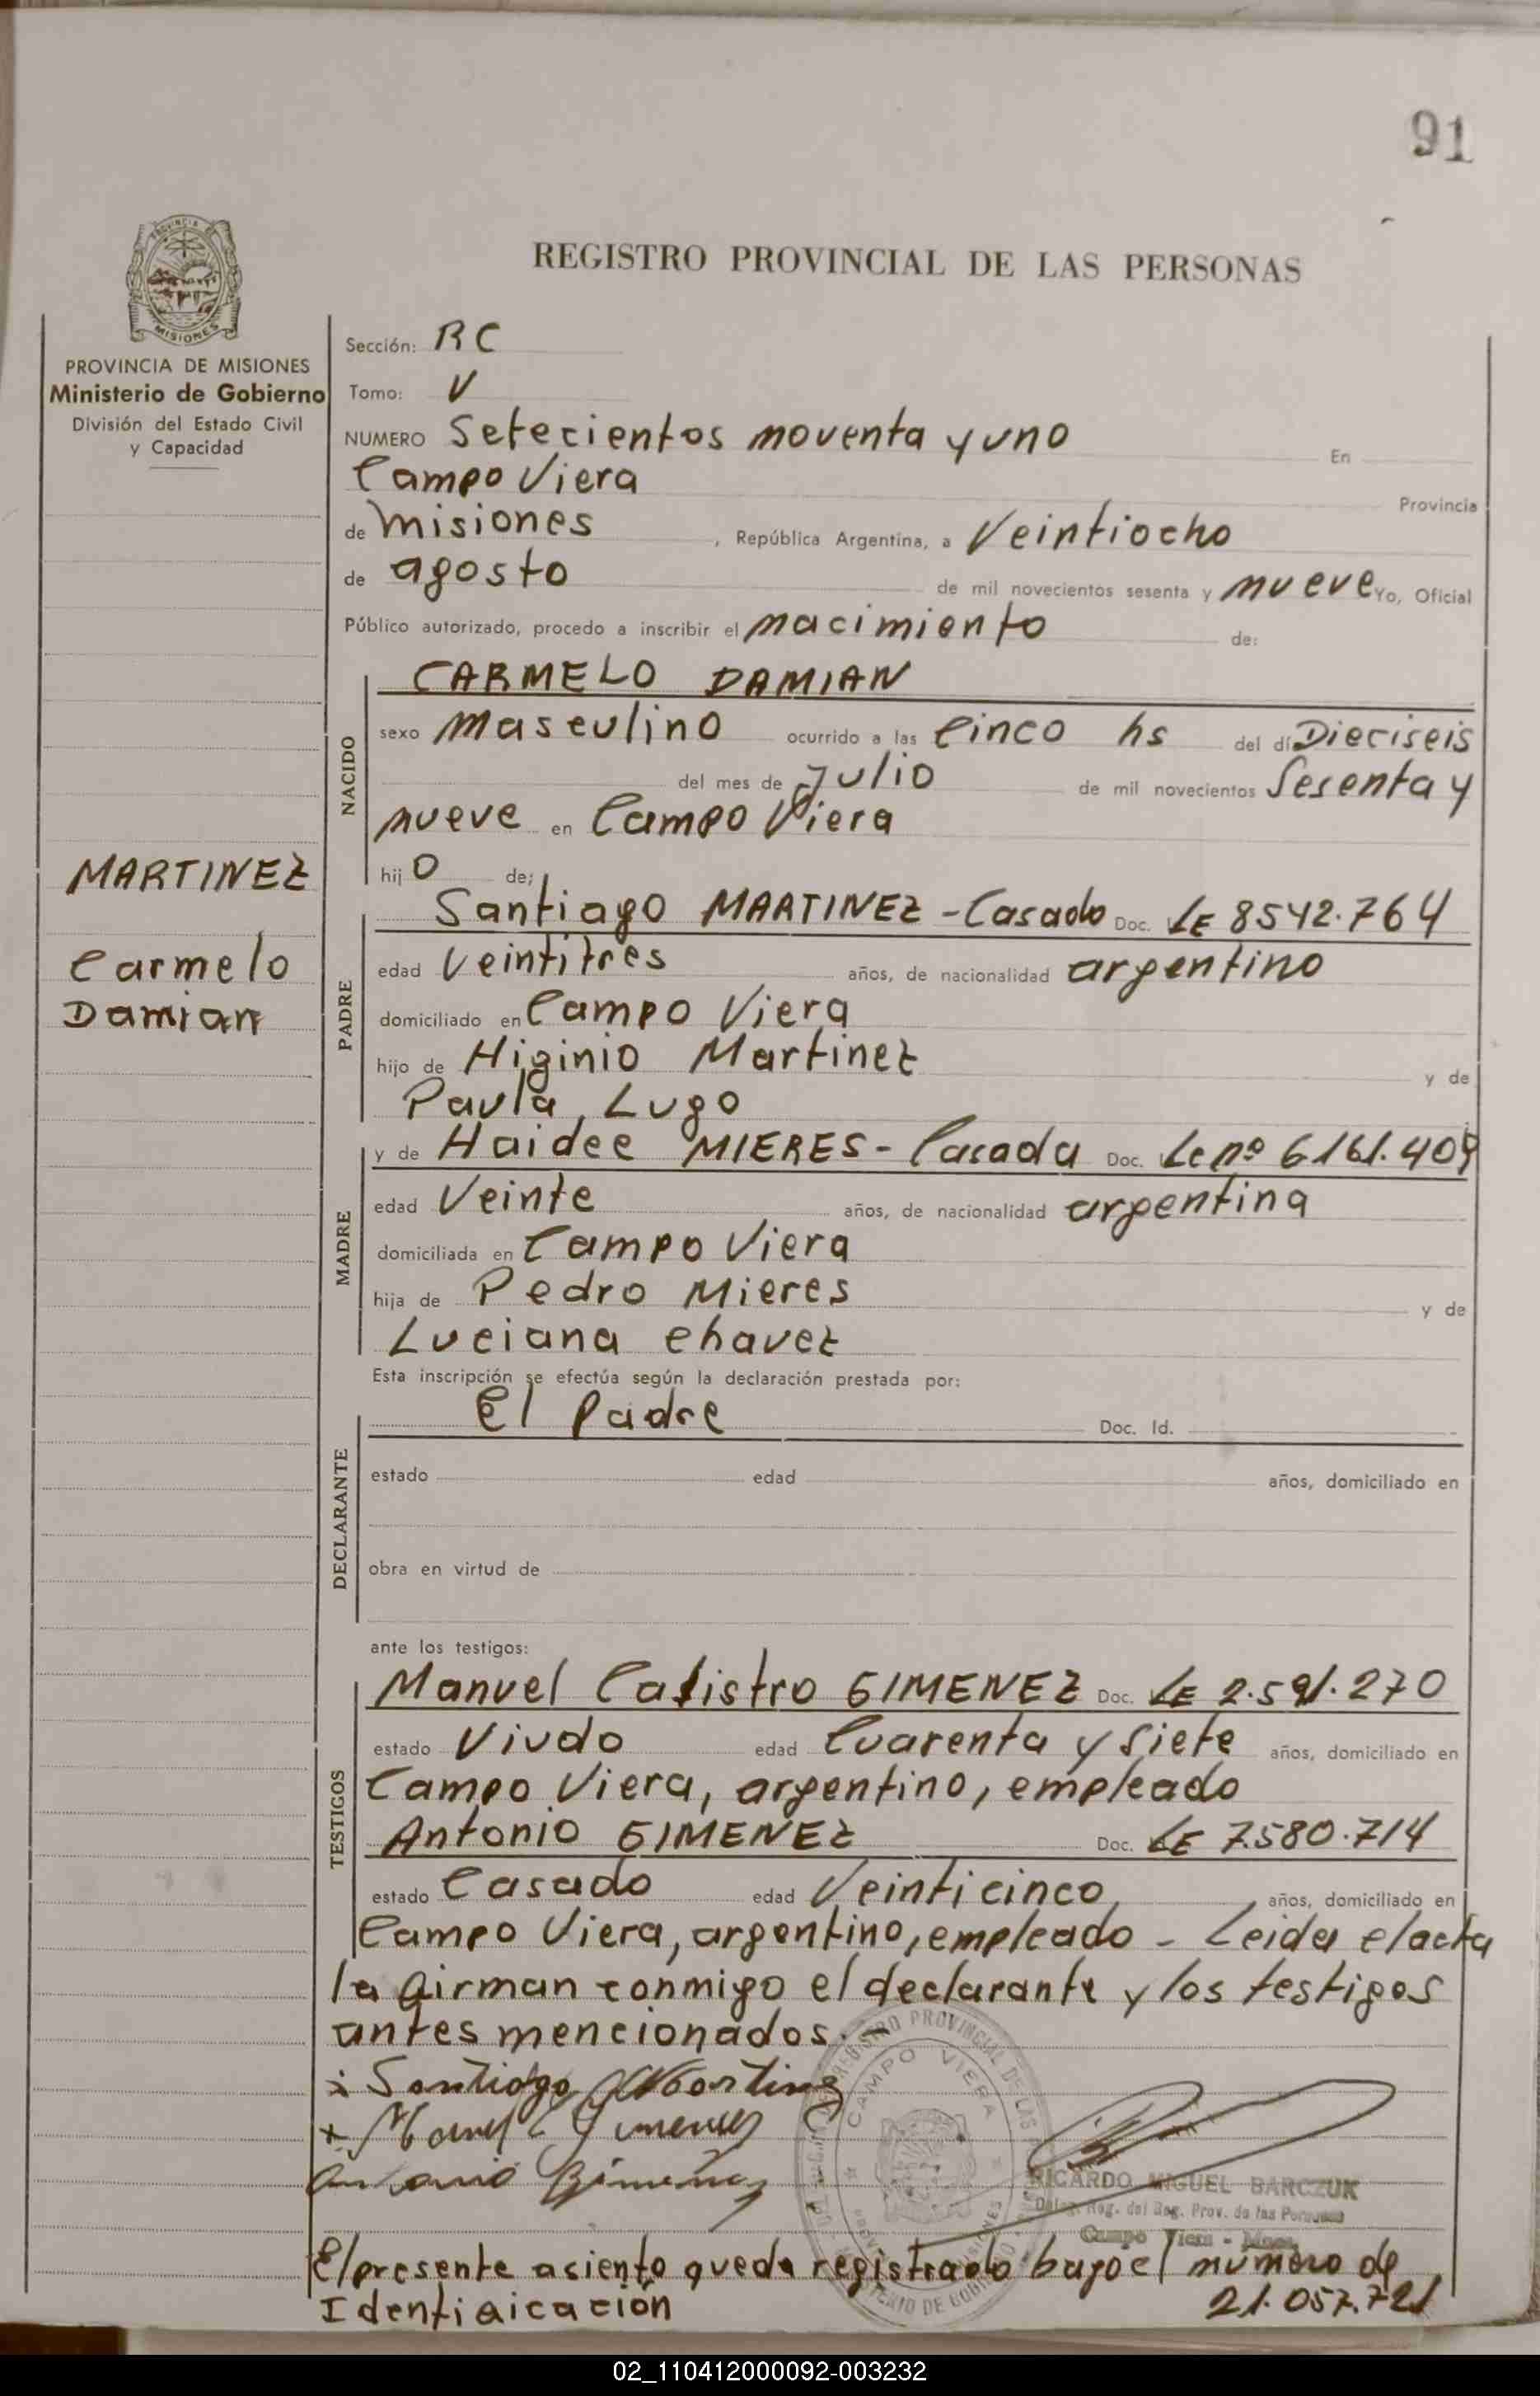 91
REGISTRO PROVINCIAL DE LAS PERSONAS
PROVINCIA DE MISIONES
Ministerio de Gobierno
División del Estado Civil
y Capacidad
MARTINEZ
Carmelo
Damian
Sección: RC
Tomo: V
NUMERO Setecientos noventa y uno En
Campo Viera Provincia
de Misiones, República Argentina, a Veintiocho
de agosto de mil novecientos sesenta y nueve Yo, Oficial
Público autorizado, procedo a inscribir el nacimiento de:
NACIDO
CARMELO DAMIAN
sexo Masculino ocurrido a las Cinco hs del dí Dieciseis
del mes de Julio de mil novecientos Sesenta y
nueve en Campo Viera
hijo de;
PADRE
Santiago MARTINEZ - Casado Doc. LE 8542.764
edad Veintitres años, de nacionalidad argentino
domiciliado en Campo Viera
hijo de Higinio Martinez y de
Paula Lugo
MADRE
y de Haidee MIERES - Casada Doc. Lc nº 6161.409
edad Veinte años, de nacionalidad argentina
domiciliada en Campo Viera
hija de Pedro Mieres y de
Luciana Chavez
Esta inscripción se efectúa según la declaración prestada por:
DECLARANTE
El Padre Doc. Id.
estado edad años, domiciliado en
obra en virtud de
ante los testigos:
TESTIGOS
Manuel Calistro GIMENEZ Doc. LE 2.591.270
estado Viudo edad Cuarenta y Siete años, domiciliado en
Campo Viera, argentino, empleado
Antonio GIMENEZ Doc. LE 7.580.714
estado Casado edad Veinticinco años, domiciliado en
Campo Viera, argentino, empleado - Leida el acta
la firman conmigo el declarante y los testigos
antes mencionados.-
Santiago Martinez
Manuel C Gimenez
Antonio Gimenez
CAMPO VIERA
RICARDO MIGUEL BARCZUK
Deleg. Reg. del Reg. Prov. de las Personas
Campo Viera - Mnes.
El presente asiento queda registrado bajo el numero de
Identificación 21.057.721
02_110412000092-003232